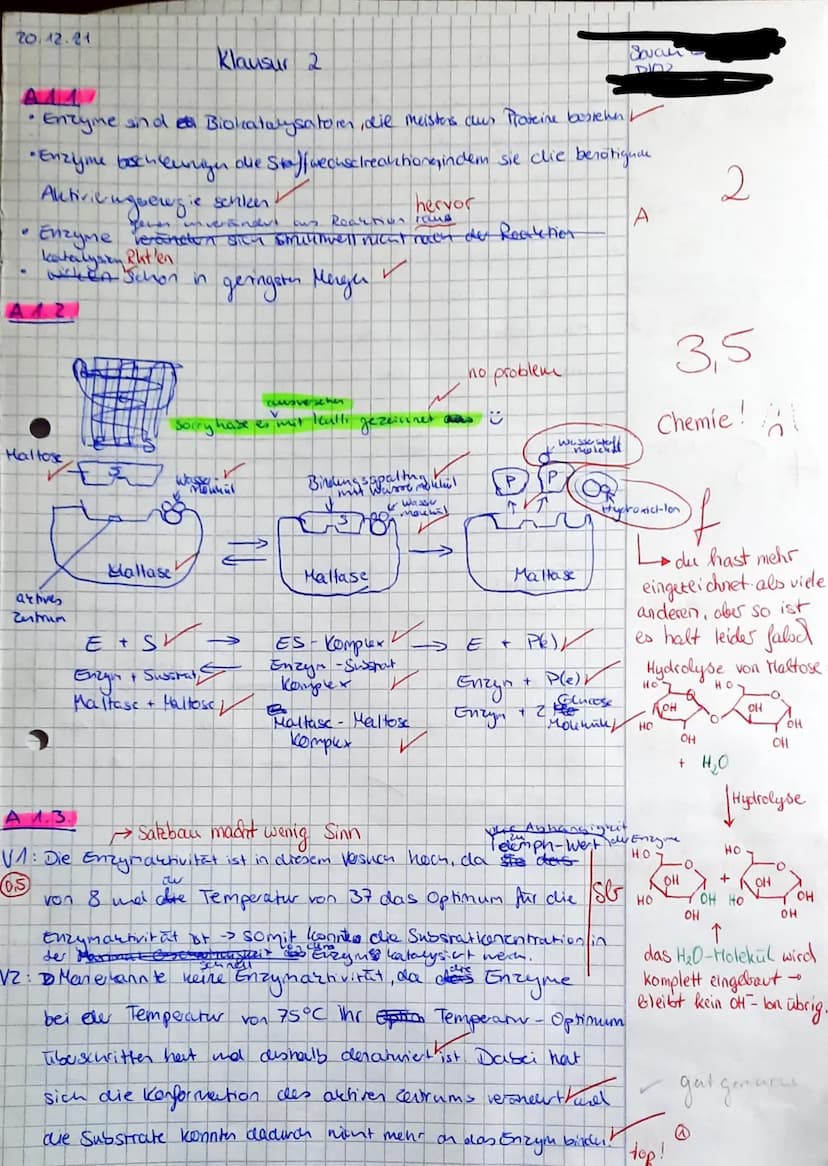 20.12.21
Klausur 2
Sarah
A 1.1.
• Enzyme sind Biokatalysatoren, die meistens aus Proteine bestehen
2
• Enzyme beschleunigen die Stoffwechselreaktionen, indem sie die benötigende
Aktivierungsenergie senken
hervor
A
gehen unverändert aus Reaktion raus
• Enzyme verändern sich strukturell nicht nach der Reaktion
katalysieren Rkt'en
• wirken schon in geringsten Mengen
A 1.2.
3,5
no problem
ausversehen
sorry habe es mit Kulli gezeichnet
Chemie!
Maltose
S
Wasser molekül
Bindungsspaltung mit Wassermolekül
Wasser molekül
S
P
P
Wasserstoff
Hydroxid-Ion
f
Maltase
Maltase
Maltase
aktives Zentrum
du hast mehr
eingezeichnet als viele
anderen, aber so ist
es halt leider falsch
E + S
ES-Komplex
E + P(e)
Enzym + Substrat
Enzym-Substrat Komplex
Enzym + P(e)
Maltase + Maltose
Maltase-Maltose Komplex
Enzym + 2 Glucose Moleküle
Hydrolyse von Maltose
HO
HO
O
OH
OH
O
HO
OH
OH
OH
+ H₂O
Hydrolyse
A 1.3.
→ Satzbau macht wenig Sinn
V1: Die Enzymaktivität ist in diesem Versuch hoch, da
dem ph-Wert der Enzyme
0,5
von 8 und der Temperatur von 37 das Optimum für die
Sb
Enzymaktivität ist → somit konnte die Substratkonzentration in
der
Enzym katalysiert werden.
V2: Man erkannte keine Enzymaktivität, da Enzyme
schnell
bei der Temperatur von 75°C ihr Temperatur-Optimum
überschritten hat und deshalb denaturiert ist. Dabei hat
sich die Konformation des aktiven Zentrums verändert und
die Substrate konnten dadurch nicht mehr an das Enzym binden.
HO
HO
O
O
OH
+
OH
HO
OH
HO
OH
OH
OH
das H₂O-Molekül wird
komplett eingebaut →
bleibt kein OH⁻-Ion übrig.
top!